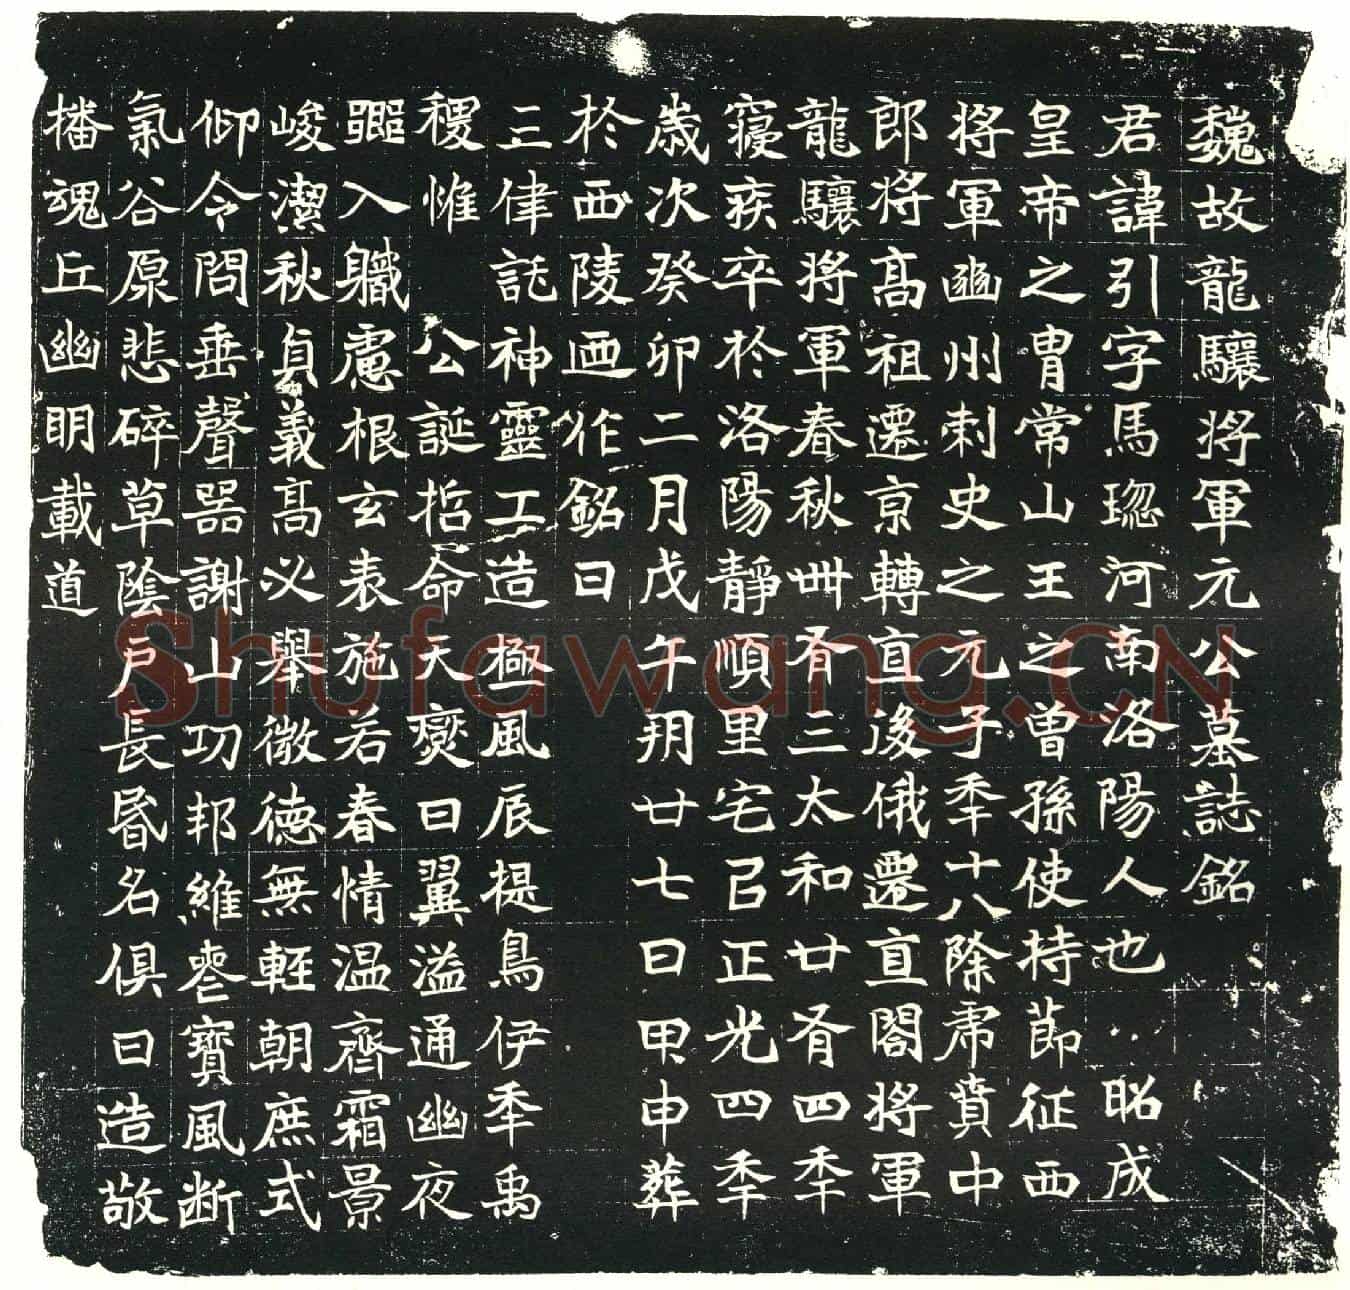 魏故龍驤將軍元公墓誌銘
君諱引字馬河南洛陽人也昭成
皇帝之胄常山王之曾孫使持節征西
將軍幽州刺史之元子年十八除虎賁中
郎將髙祖遷京轉直後俄遷直閤將軍
龍驤將軍春秋卌有三太和廿有四年
寢疾卒於洛陽靜順里宅以正光四年
歲次癸卯二月戊午朔廿七日甲申葬
於西陵迺作銘曰
三律託神靈工造極風辰提鳥伊年禹
稷惟公誕哲命天爕曰翼溢通幽夜
入職慮根玄表施若春情温齊霜景
峻潔秋貞義髙必舉微德無輊朝庶式
仰令問垂聲器謝山功邦維喪寶風断
氣谷原悲碎草陰戶長昏名俱日造敬
播魂丘幽明載道
Shufawang.CN